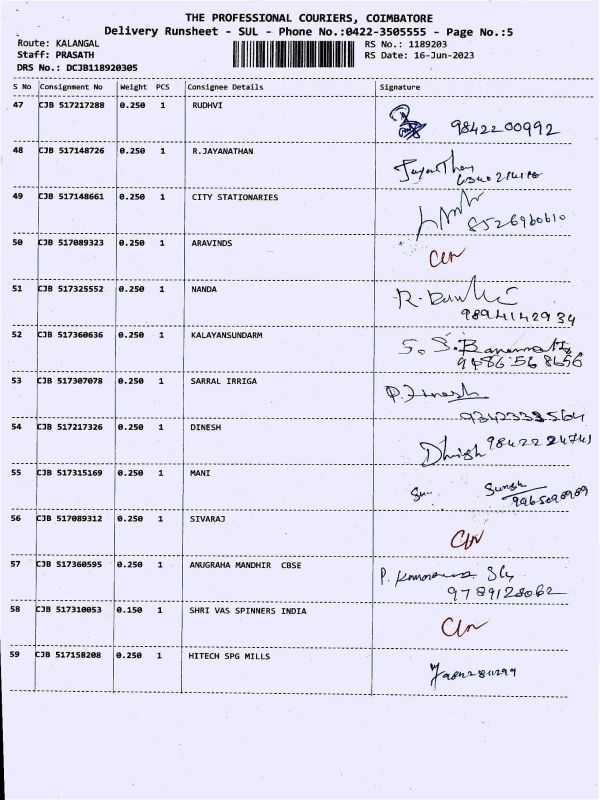 THE PROFESSIONAL COURIERS, COIMBATORE
Delivery Runsheet - SUL - Phone No.:0422-3505555 - Page No.:5
Route: KALANGAL RS No.: 1189203
Staff: PRASATH RS Date: 16-Jun-2023
DRS No.: DCJB118920305
S No Consignment No Weight PCS Consignee Details Signature
47 CJB 517217288 0.250 1 RUDHVI
9842200992
48 CJB 517148726 0.250 1 R.JAYANATHAN
49 CJB 517148661 0.250 1 CITY STATIONARIES
8526960610
50 CJB 517089323 0.250 1 ARAVINDS
51 CJB 517325552 0.250 1 NANDA
9894142934
52 CJB 517360636 0.250 1 KALAYANSUNDARM
9486568656
53 CJB 517307078 0.250 1 SARRAL IRRIGA
P. Dinesh
54 CJB 517217326 0.250 1 DINESH
9842224741
55 CJB 517315169 0.250 1 MANI
56 CJB 517089312 0.250 1 SIVARAJ
57 CJB 517360595 0.250 1 ANUGRAHA MANDHIR CBSE
9789128062
58 CJB 517310053 0.150 1 SHRI VAS SPINNERS INDIA
59 CJB 517158208 0.250 1 HITECH SPG MILLS